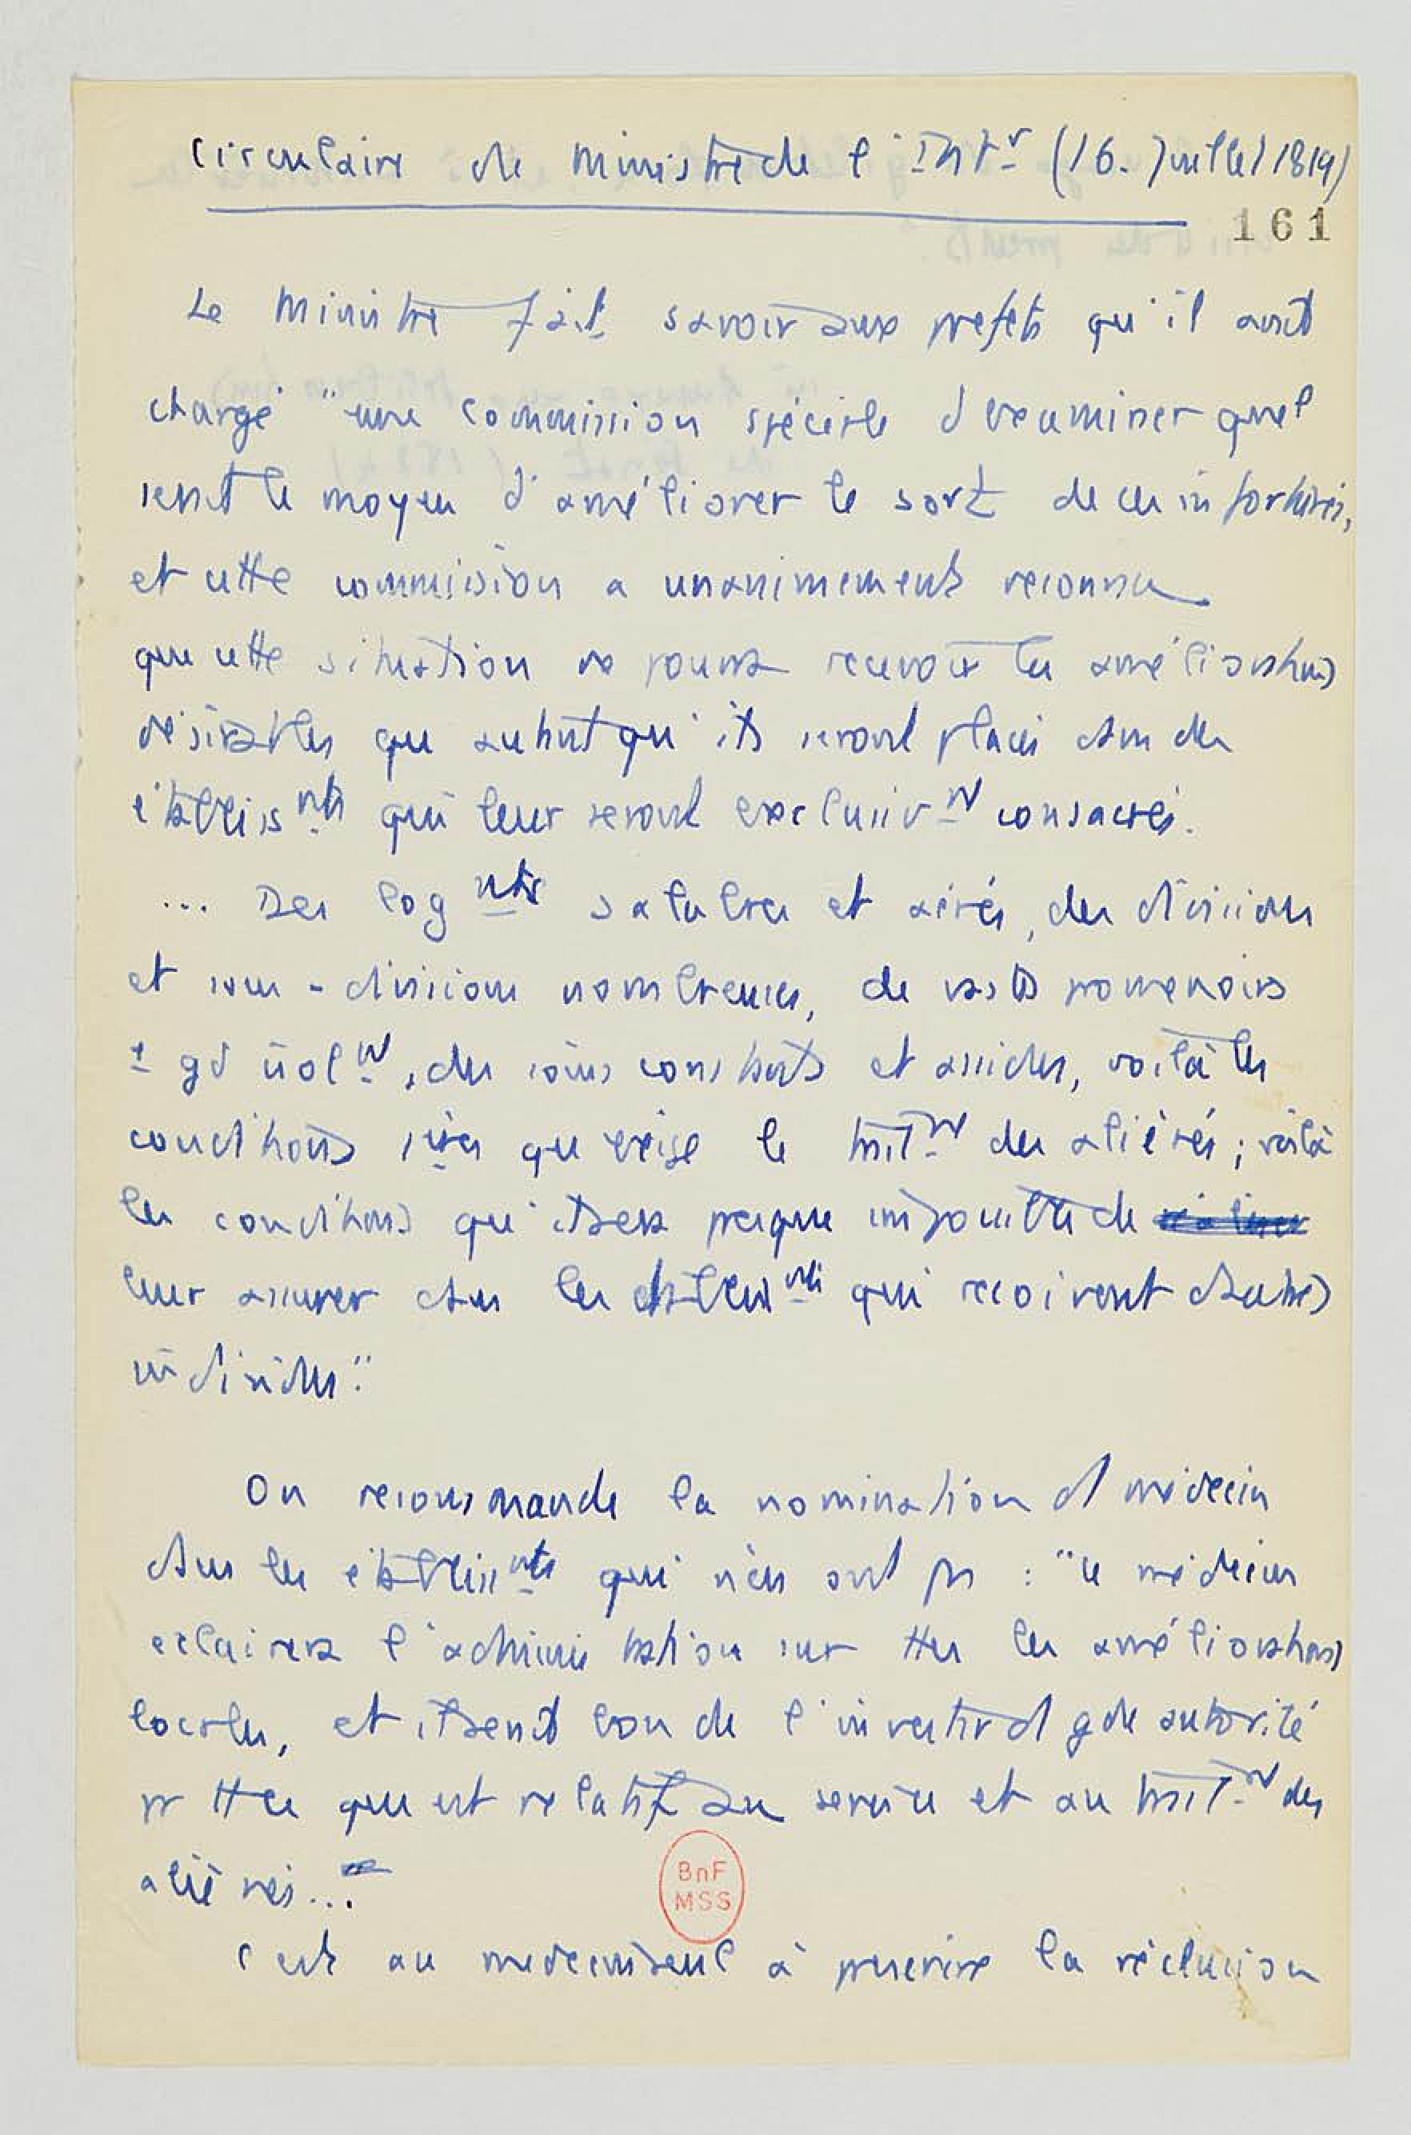 Circulaire du Ministre de l'Int^r (16. Juillet 1819)
161
Le Ministre fait savoir aux prefets qu'il avait
chargé "une commission spéciale d'examiner quel
serait le moyen d'améliorer le sort de ces infortunés,
et cette commission a unanimement reconnu
que cette situation ne pourra recevoir les améliorations
désirables que autant qu'ils seront placés dans des
établiss^nts qui leur seront exclusiv^nt consacrés.
... Des log^nts salubres et aérés, des divisions
et sous-divisions nombreuses, de vastes promenoirs
gd isol^nt, des soins constants et assidus, voilà les
conditions que exige le trait^nt des aliénés ; voilà
les conditions qu'il sera presque impossible de réaliser
leur assurer dans les établiss^nts qui reçoivent d'autres
individus."
On recommande la nomination d'1 médecin
dans les établiss^nts qui n'en ont pas : "ce médecin
eclairera l'administration sur ttes les améliorations
locales, et il serait bon de l'investir d'1 gde autorité
pr tt ce qui est relatif au service et au trait^nt des
aliénés...
C'est au medecin seul à prescrire la réclusion
BnF
MSS